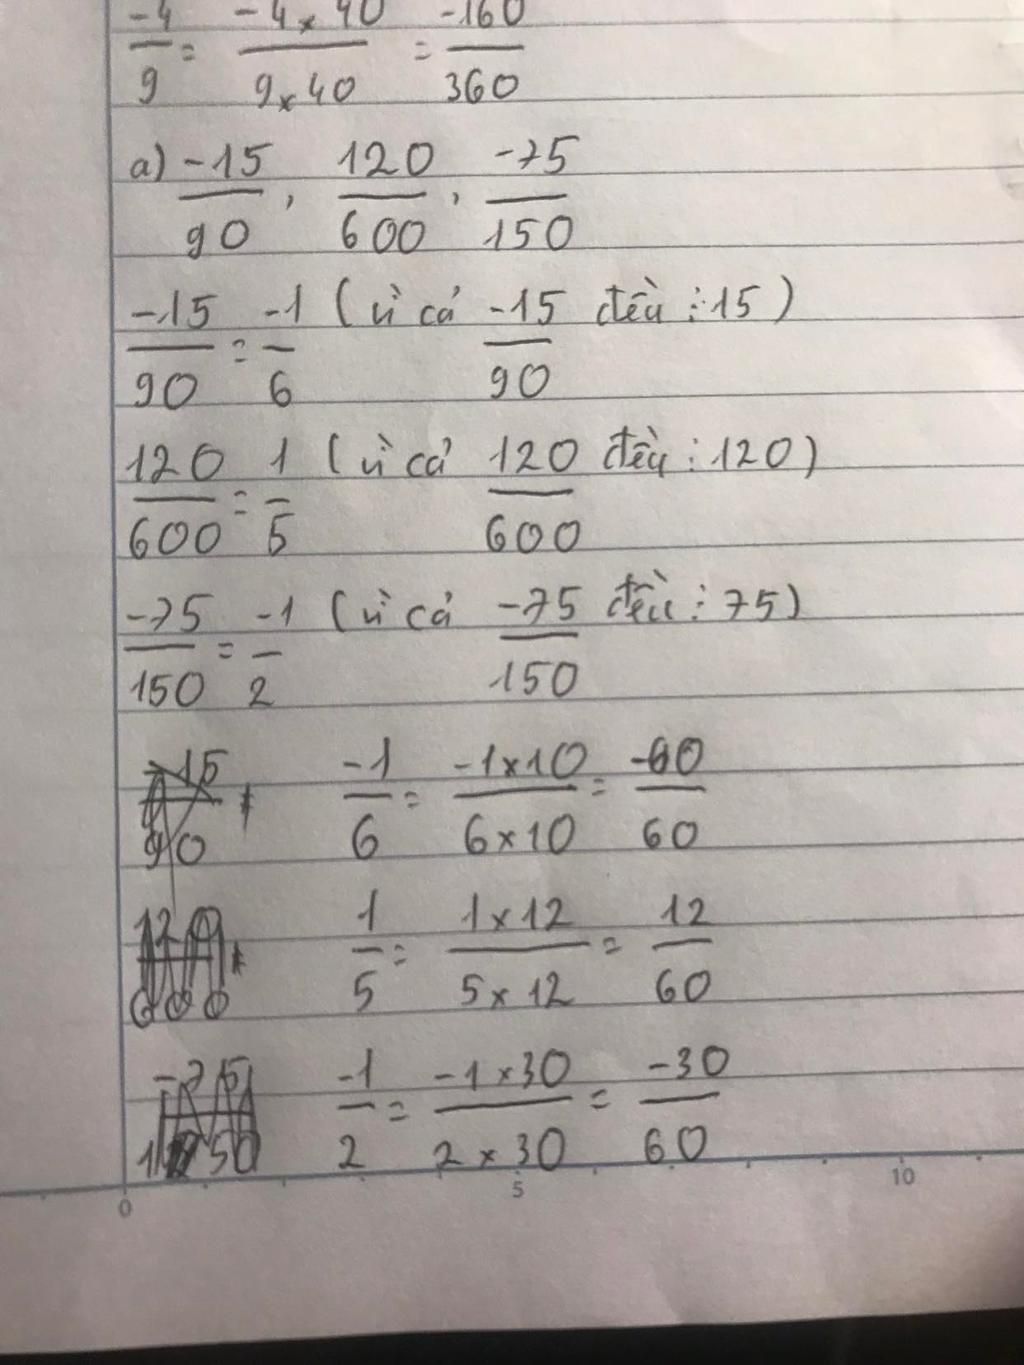 -4/9 = -4 x 40 / 9 x 40 = -160/360
a) -15/90, 120/600, -75/150
-15/90 = -1/6 (vì cả -15/90 đều : 15)
120/600 = 1/5 (vì cả 120/600 đều : 120)
-75/150 = -1/2 (vì cả -75/150 đều : 75)
-1/6 = -1 x 10 / 6 x 10 = /60
1/5 = 1 x 12 / 5 x 12 = 12/60
-1/2 = -1 x 30 / 2 x 30 = -30/60
0 5 10